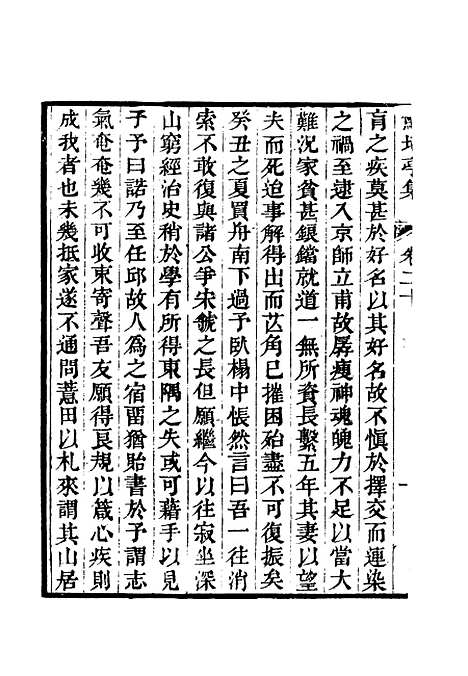 鮚埼亭集 卷二十
肓之疾莫甚於好名以其好名故不愼於擇交而連染
之禍至逮入京師立甫故孱瘦神魂魄力不足以當大
難況家貧甚鋃鐺就道一無所資長繫五年其妻以望
夫而死迨事解得出而芒角已摧困殆盡不可復振矣
癸丑之夏買舟南下過予臥榻中悵然言曰吾一往消
索不敢復與諸公爭朱虢之長但願繼今以往寂坐深
山窮經治史稍於學有所得東隅之失或可藉手以見
子予曰諾乃至任邱故人爲之宿畱猶貽書於予謂志
氣奄奄幾不可收東寄聲吾友願得良規以箴心疾則
成我者也未幾抵家遂不通問薏田以札來謂其山居